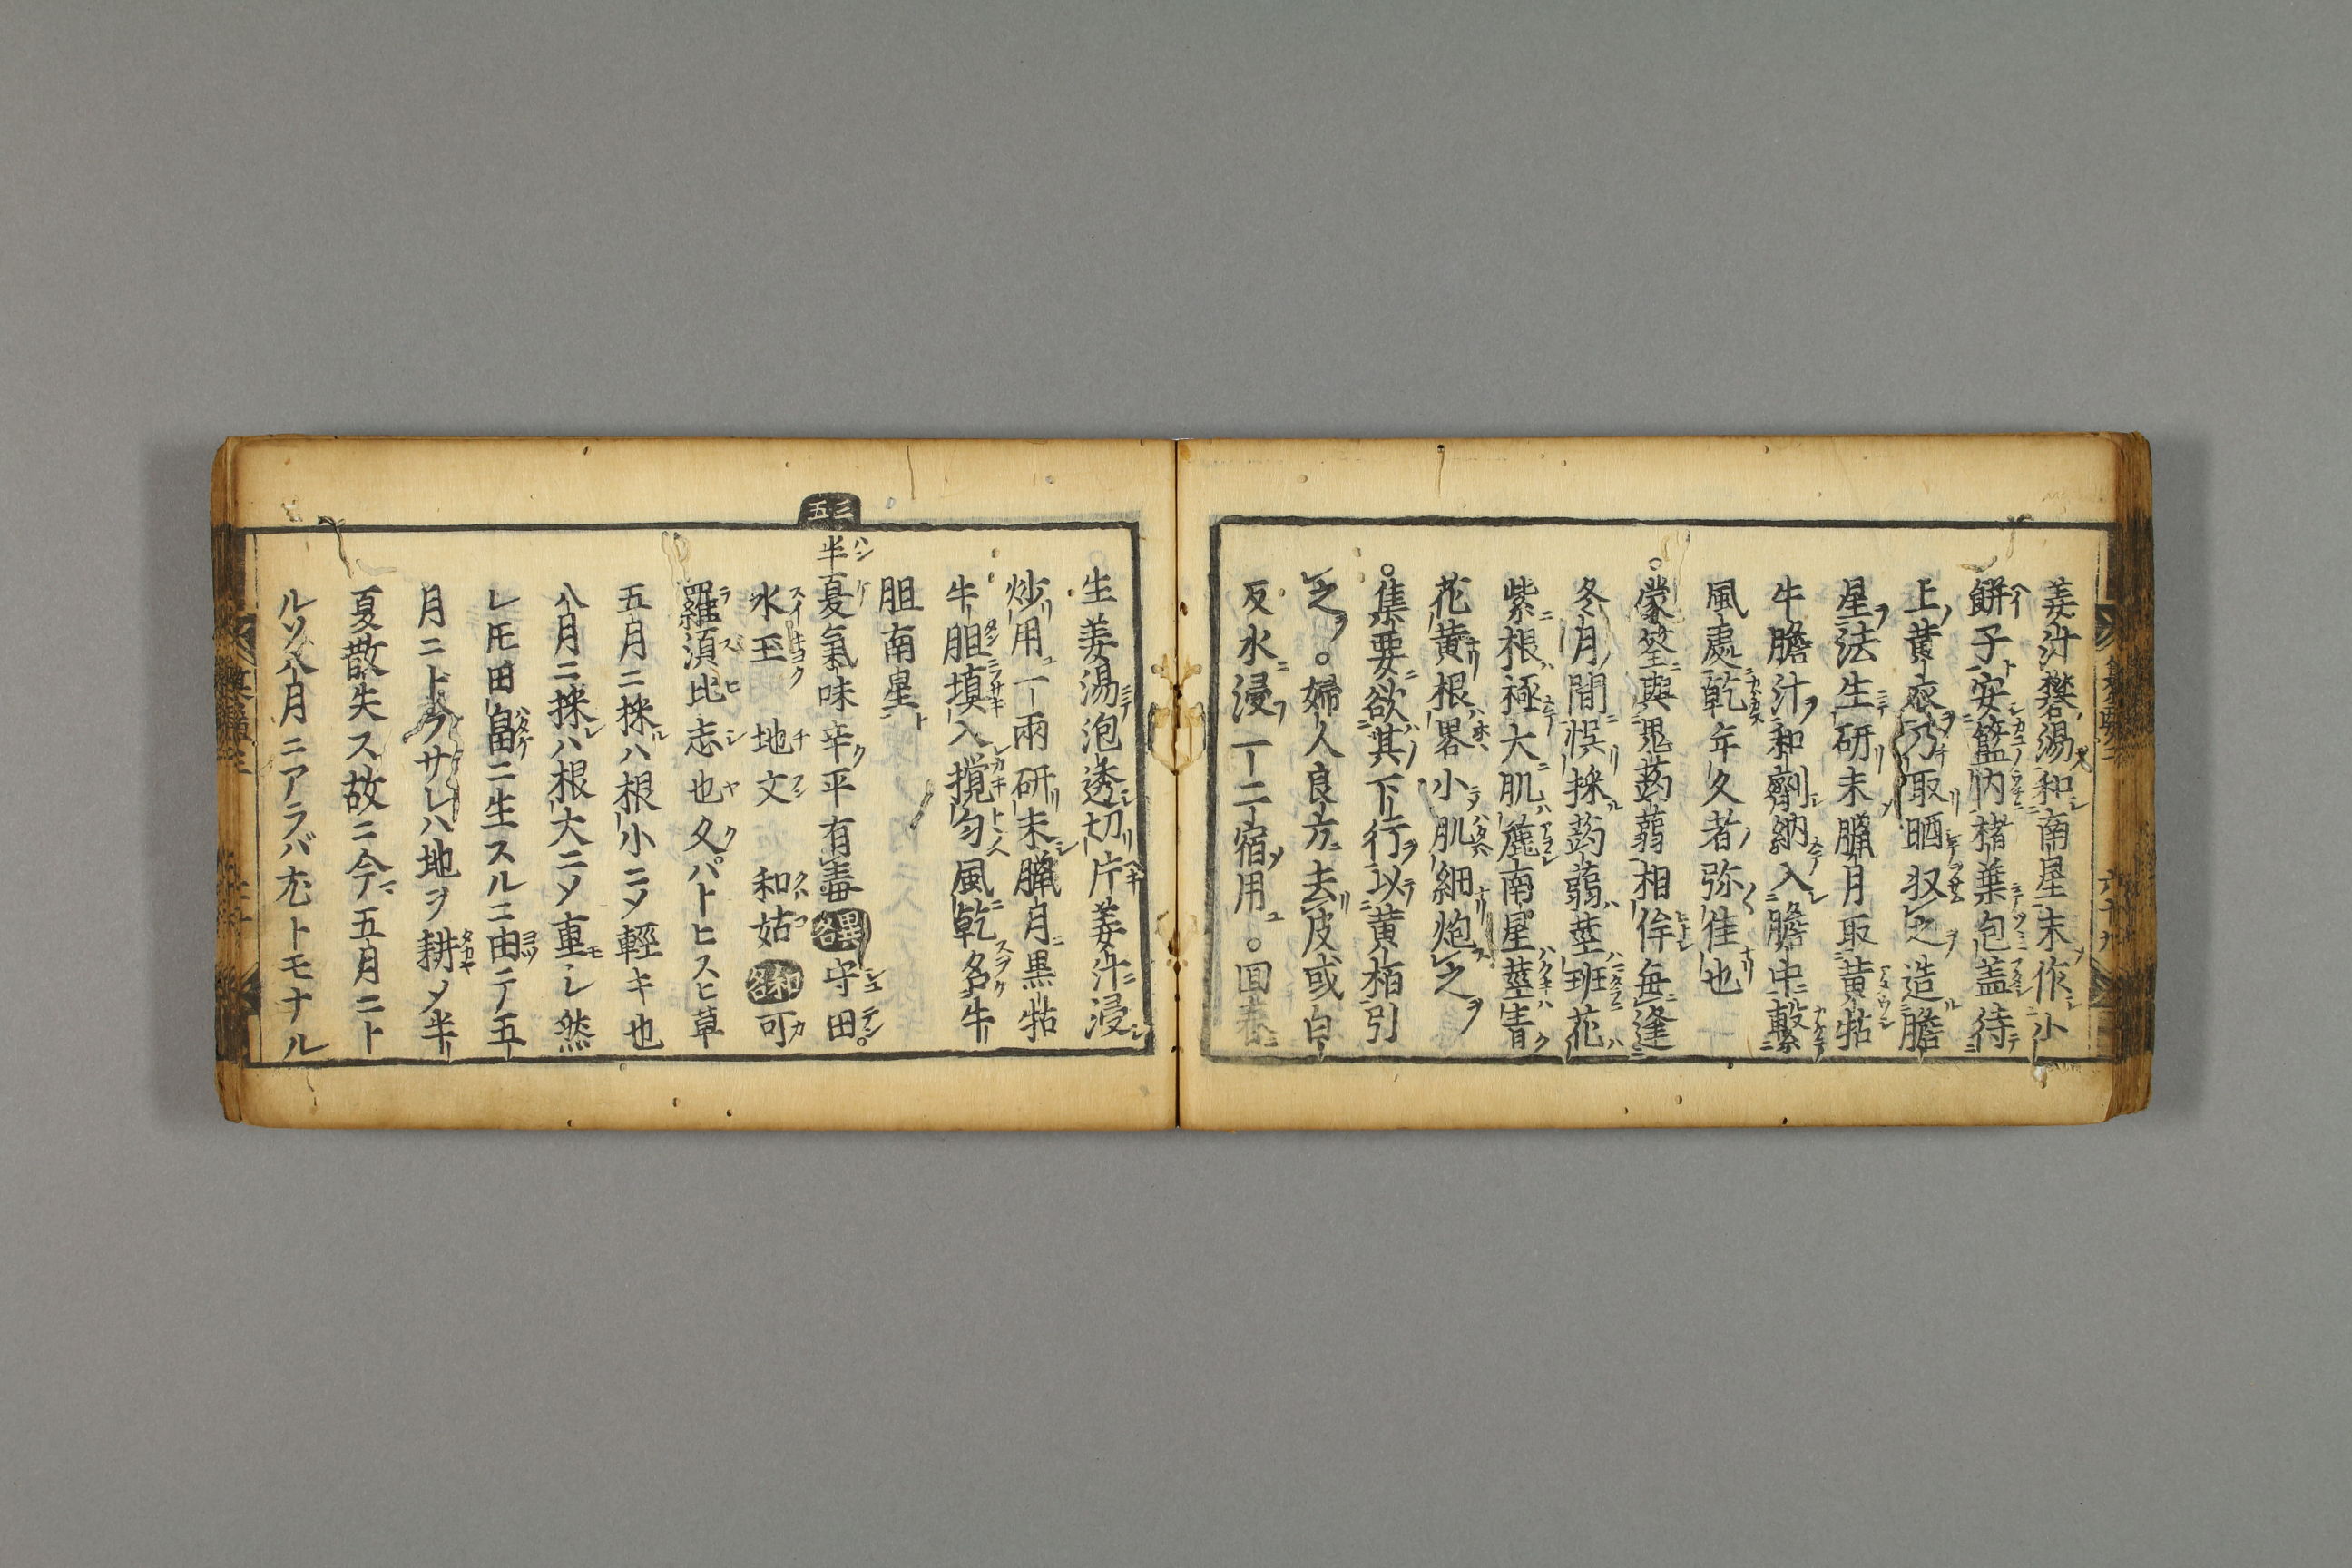 姜汁礬湯和南星末作小
餅子安籃内楮葉包盖待
上黄衣乃取晒収之造膽
星法生研末臘月取黄牯
牛膽汁和劑納入膽中繫
風處乾年久者弥佳也
○蒙筌與鬼蒟蒻相侔毎逢
冬月間悞採蒟蒻莖斑花
紫根極大肌麁南星莖青
花黄根畧小肌細炮之
○集要欲其下行以黄栢引
之○婦人良方去皮或白
反水浸一二宿用○回春
生姜湯泡透切片姜汁浸
炒用一兩研末臘月黒牯
牛胆填入攪匀風乾名牛
胆南星
三五
半夏氣味辛平有毒異名守田
水玉 地文 和姑 和名可
羅須比志也久パトヒスヒ草
五月ニ採ハ根小ニメ輕キ也
八月ニ採ハ根大ニメ重シ然
レモ田畠ニ生スルニ由テ五
月ニトラサレハ地ヲ耕メ半
夏散失ス故ニ今五月ニト
ルソ八月ニアラバ尤トモナル